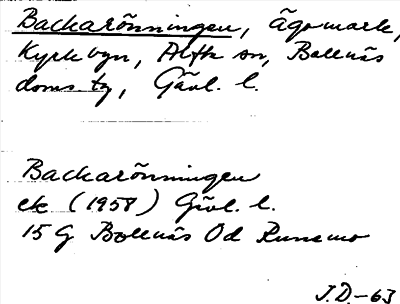 Backarönningen, Ägomark,
Kyrkbyn, Alfta sn, Bollnäs
doms. tg, Gävl. l.
Backarönningen
ek (1958) Gävl. l.
15 G Bollnäs Od Runemo
J.D.-63